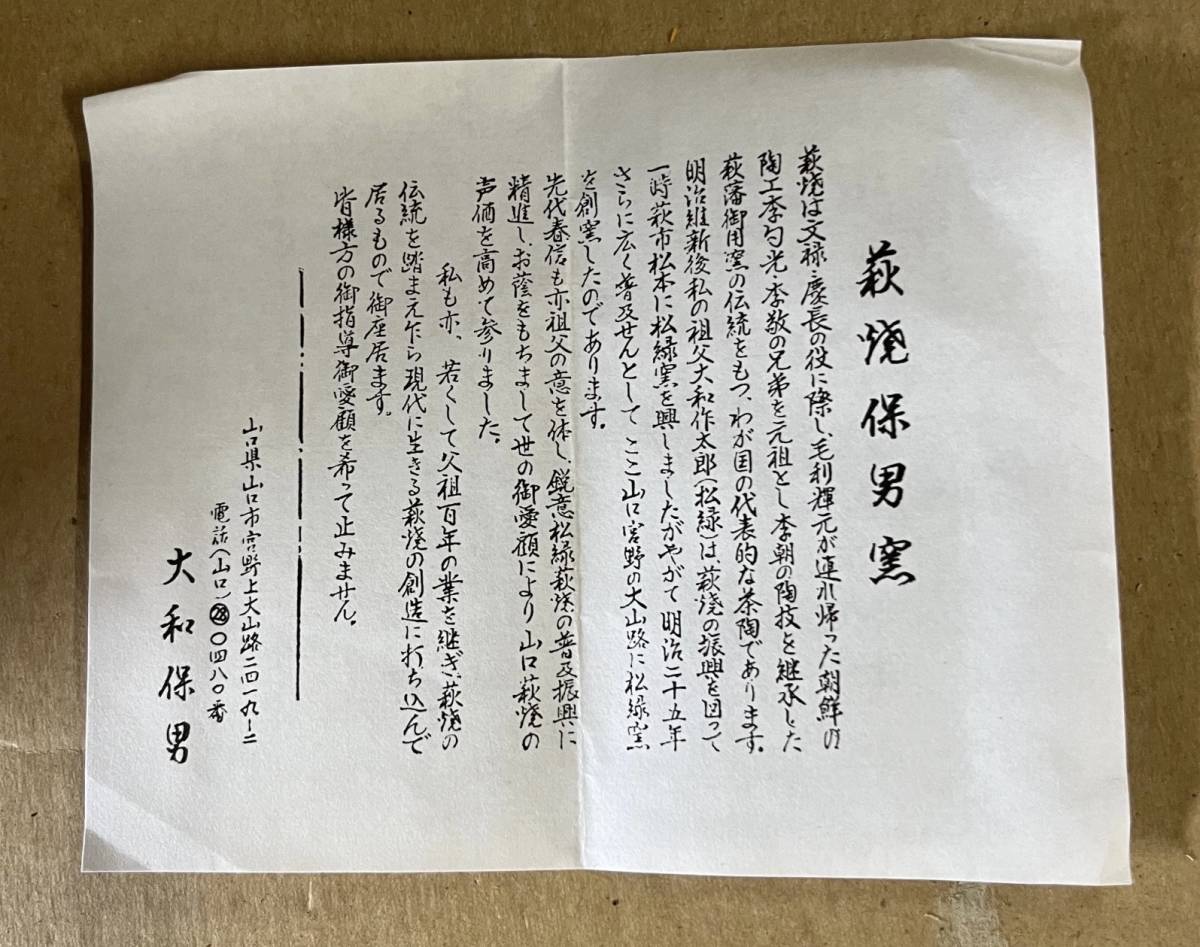 萩焼保男窯
萩焼は文禄・慶長の役に際し、毛利輝元が連れ帰った朝鮮の
陶工李勺光・李敬の兄弟を元祖とし李朝の陶技を継承した
萩藩御用窯の伝統をもつ、わが国の代表的な茶陶であります。
明治維新後私の祖父大和作太郎(松緑)は、萩焼の振興を図って
一時萩市松本に松緑窯を興しましたがやがて明治二十五年
さらに広く普及せんとしてここ山口宮野の大山路に松緑窯
を創窯したのであります。
先代春信も亦祖父の意を体し、鋭意松緑萩焼の普及振興に
精進し、お蔭をもちまして世の御愛顧により山口萩焼の
声価を高めて参りました。
私も亦、若くして父祖百年の業を継ぎ、萩焼の
伝統を踏まえ乍ら現代に生きる萩焼の創造に打ち込んで
居るもので御座居ます。
皆様方の御指導御愛顧を希って止みません。
山口県山口市宮野上大山路二〇一九ー二
電話(山口)㉘〇四八〇番
大和保男